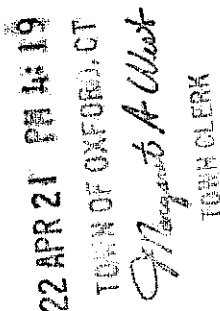 22 APR 21 PM 4:19
TOWN OF OXFORD, CT
Margaret A West
TOWN CLERK